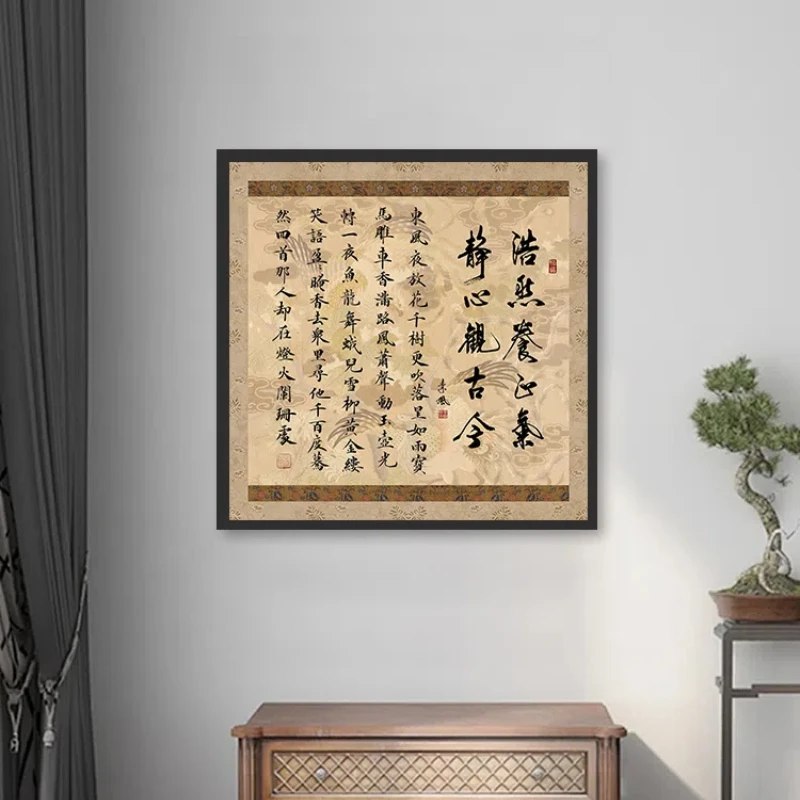 浩然養正氣
靜心觀古今
東風夜放花千樹更吹落星如雨寳
馬雕車香滿路鳳蕭聲動玉壺光
轉一夜魚龍舞蛾兒雪柳黃金縷
笑語盈〻暗香去衆里尋他千百度驀
然回首那人却在燈火闌珊處